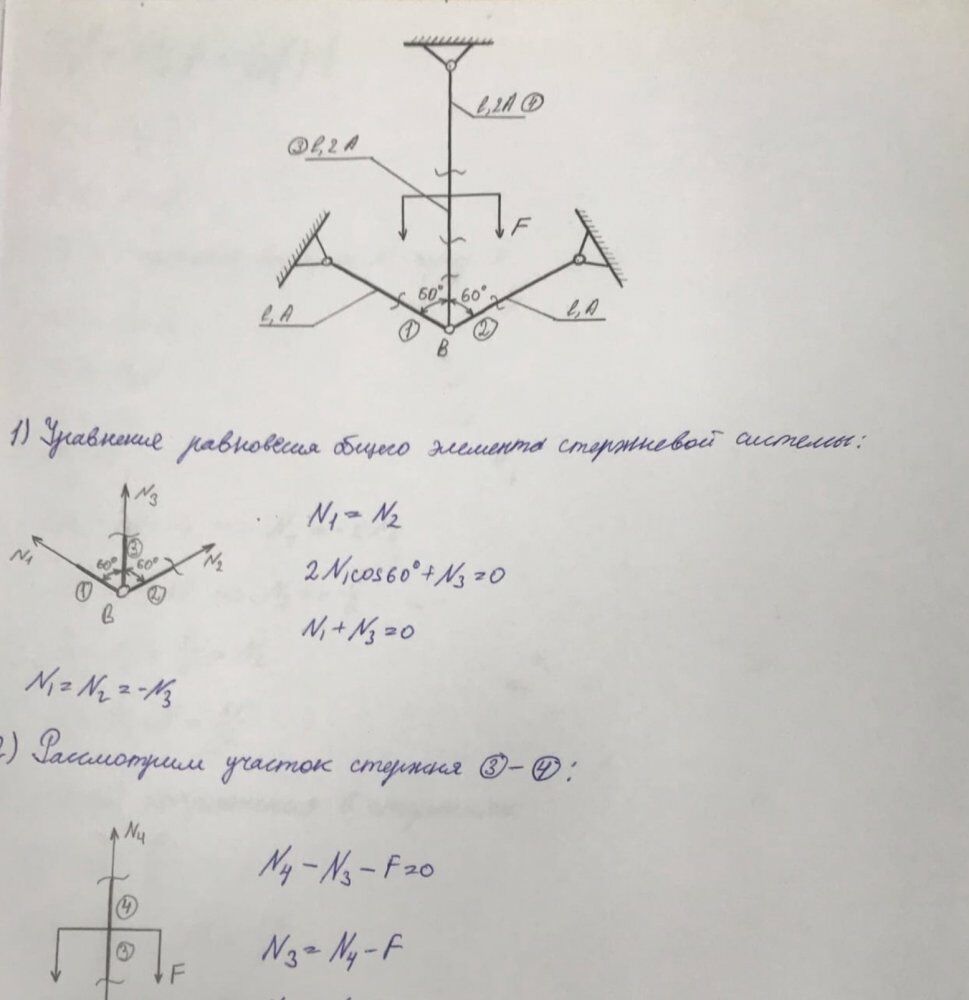 ℓ, 2A ④
③ ℓ, 2A
F
60° 60°
ℓ, A
ℓ, A
① ②
B
1) Уравнение равновесия общего элемента стержневой системы:
N₃
N₁ = N₂
③
N₁ 60° 60° N₂
2N₁cos60° + N₃ = 0
① ②
B
N₁ + N₃ = 0
N₁ = N₂ = -N₃
2) Рассмотрим участок стержня ③-④:
N₄
N₄ - N₃ - F = 0
④
③
N₃ = N₄ - F
F